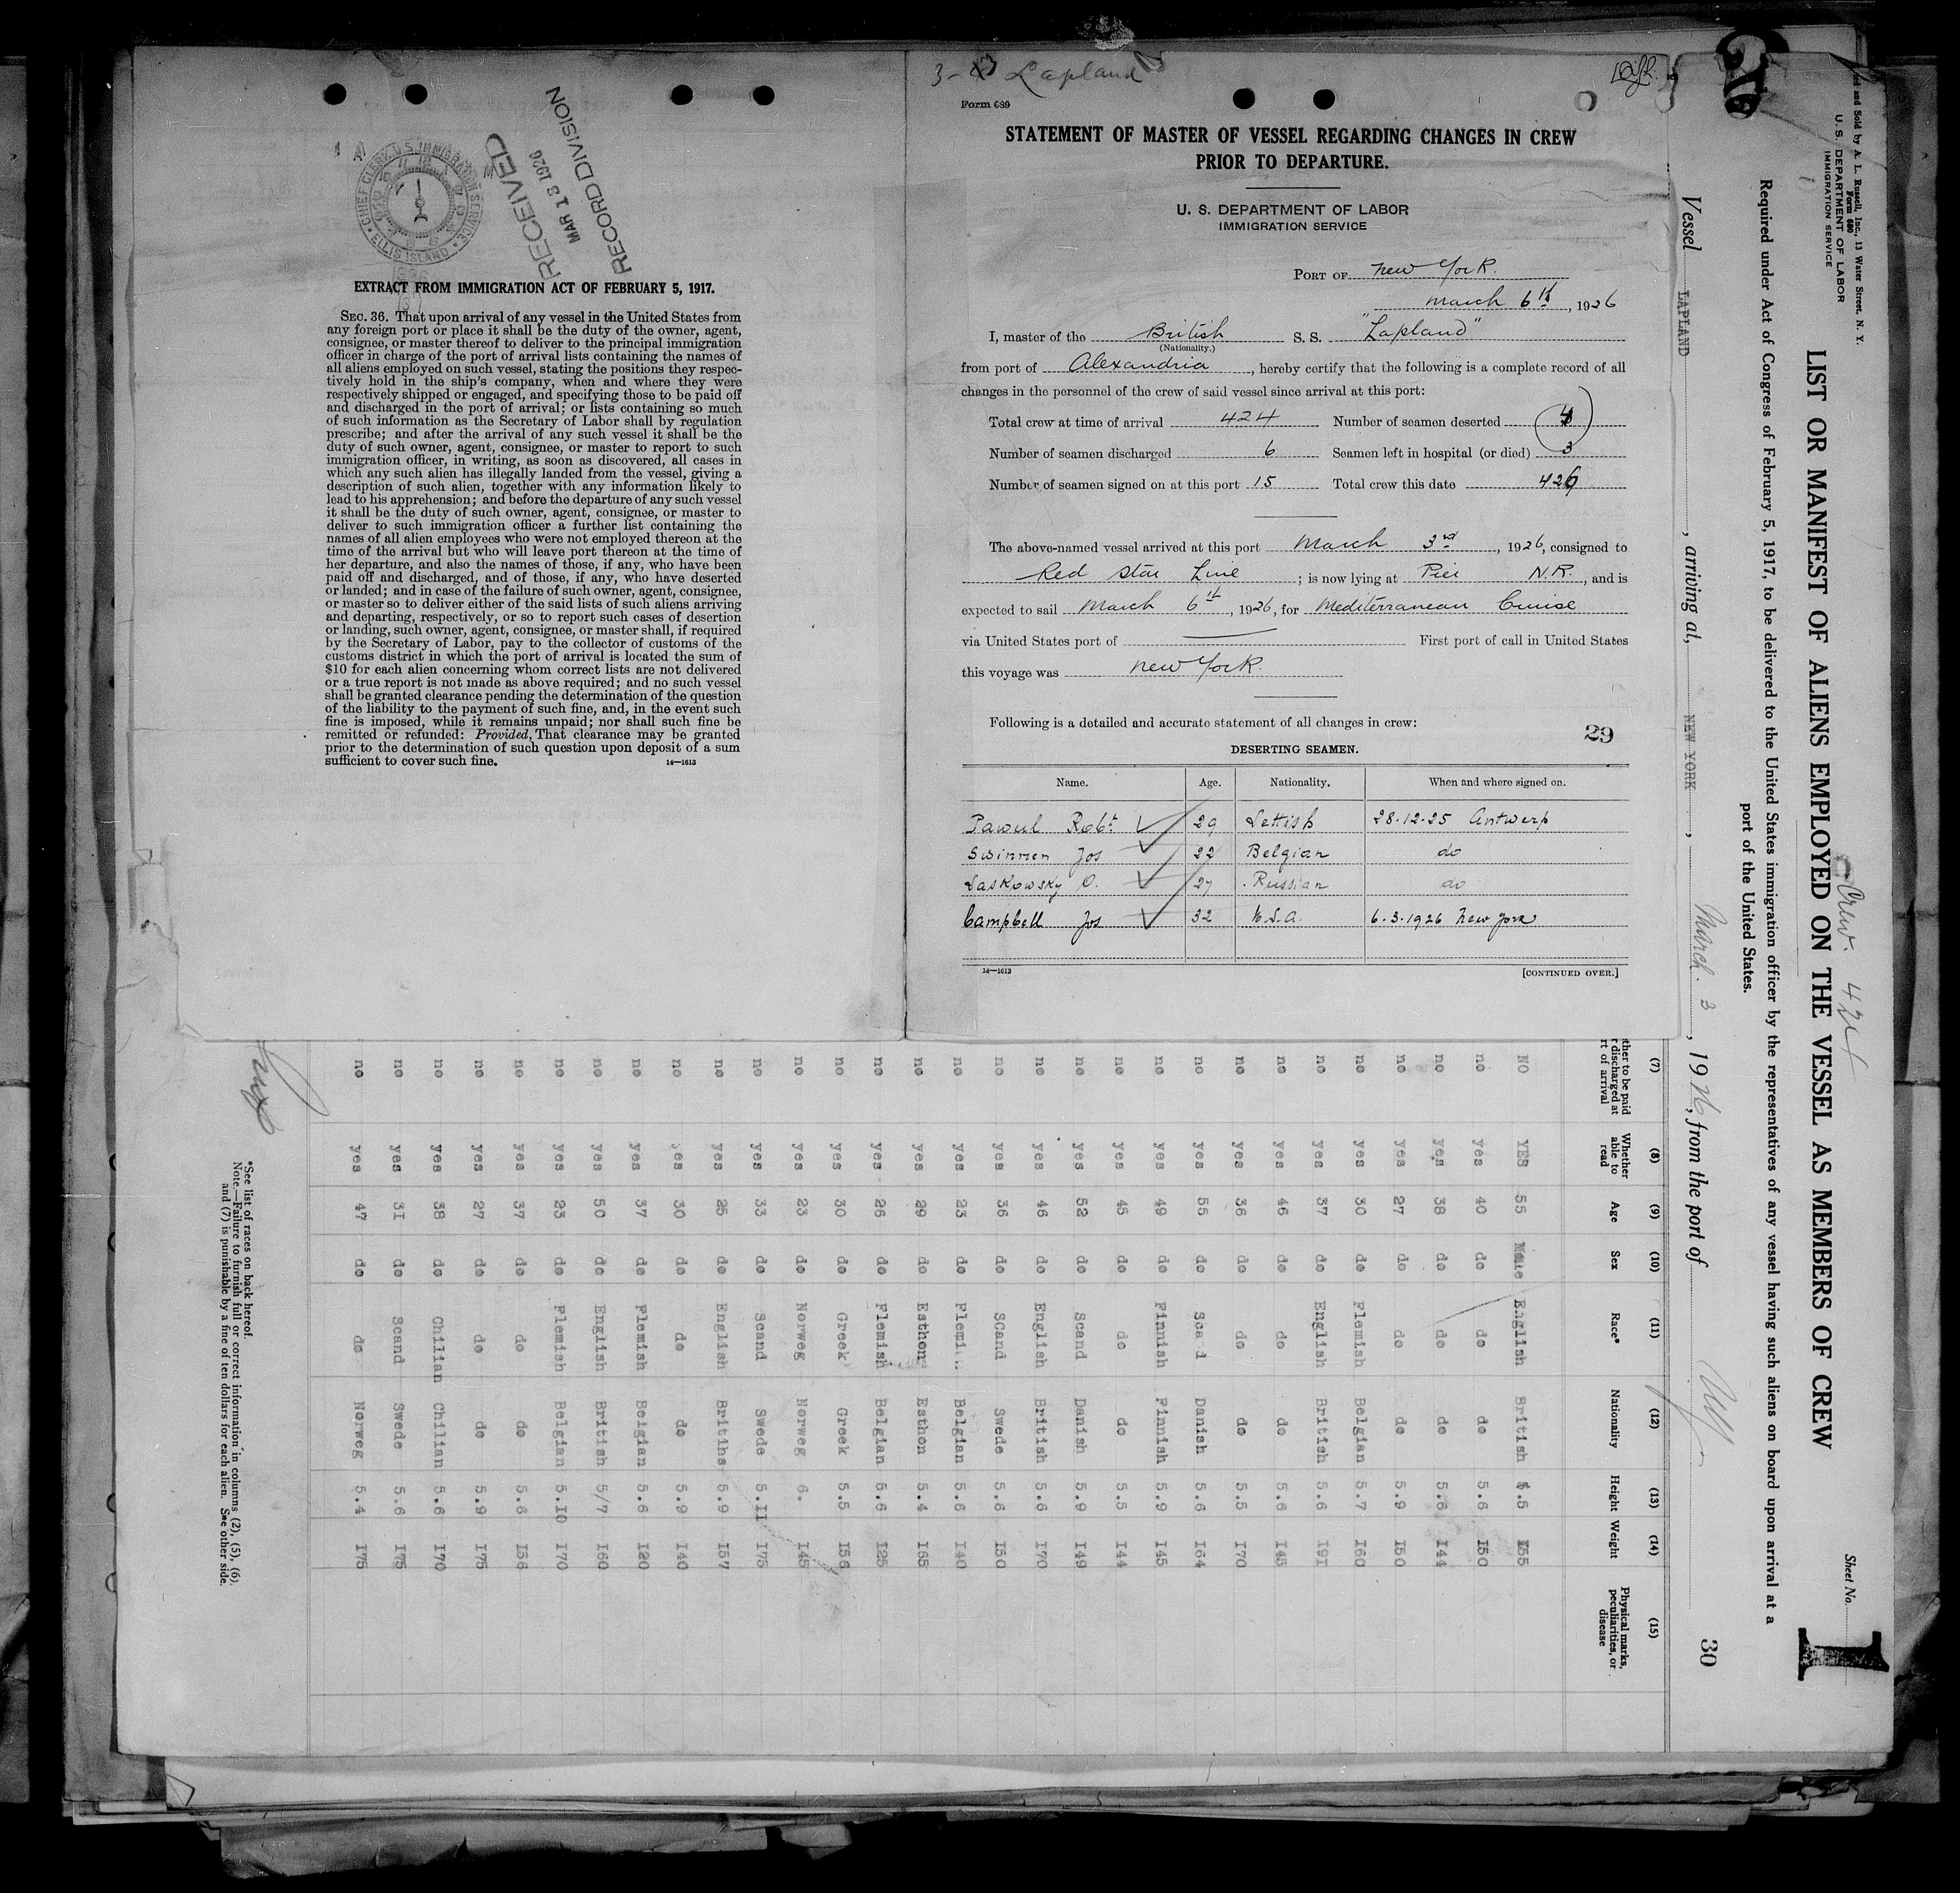 CHIEF CLERK, U.S. IMMIGRATION SERVICE
ELLIS ISLAND
RECEIVED
MAR 18 1926
RECORD DIVISION
EXTRACT FROM IMMIGRATION ACT OF FEBRUARY 5, 1917.
SEC. 36. That upon arrival of any vessel in the United States from
any foreign port or place it shall be the duty of the owner, agent,
consignee, or master thereof to deliver to the principal immigration
officer in charge of the port of arrival lists containing the names of
all aliens employed on such vessel, stating the positions they respec-
tively hold in the ship's company, when and where they were
respectively shipped or engaged, and specifying those to be paid off
and discharged in the port of arrival; or lists containing so much
of such information as the Secretary of Labor shall by regulation
prescribe; and after the arrival of any such vessel it shall be the
duty of such owner, agent, consignee, or master to report to such
immigration officer, in writing, as soon as discovered, all cases in
which any such alien has illegally landed from the vessel, giving a
description of such alien, together with any information likely to
lead to his apprehension; and before the departure of any such vessel
it shall be the duty of such owner, agent, consignee, or master to
deliver to such immigration officer a further list containing the
names of all alien employees who were not employed thereon at the
time of the arrival but who will leave port thereon at the time of
her departure, and also the names of those, if any, who have been
paid off and discharged, and of those, if any, who have deserted
or landed; and in case of the failure of such owner, agent, consignee,
or master so to deliver either of the said lists of such aliens arriving
and departing, respectively, or so to report such cases of desertion
or landing, such owner, agent, consignee, or master shall, if required
by the Secretary of Labor, pay to the collector of customs of the
customs district in which the port of arrival is located the sum of
$10 for each alien concerning whom correct lists are not delivered
or a true report is not made as above required; and no such vessel
shall be granted clearance pending the determination of the question
of the liability to the payment of such fine, and, in the event such
fine is imposed, while it remains unpaid; nor shall such fine be
remitted or refunded: Provided, That clearance may be granted
prior to the determination of such question upon deposit of a sum
sufficient to cover such fine. 14—1613
Lapland
Form 689
STATEMENT OF MASTER OF VESSEL REGARDING CHANGES IN CREW
PRIOR TO DEPARTURE.
U. S. DEPARTMENT OF LABOR
IMMIGRATION SERVICE
PORT OF New York.
March 6th, 1926
I, master of the British S. S. "Lapland"
(Nationality.)
from port of Alexandria, hereby certify that the following is a complete record of all
changes in the personnel of the crew of said vessel since arrival at this port:
Total crew at time of arrival 424 Number of seamen deserted 4
Number of seamen discharged 6 Seamen left in hospital (or died) 3
Number of seamen signed on at this port 15 Total crew this date 426
The above-named vessel arrived at this port March 3rd, 1926, consigned to
Red Star Line ; is now lying at Pier N.R., and is
expected to sail March 6th, 1926, for Mediterranean Cruise
via United States port of First port of call in United States
this voyage was New York.
Following is a detailed and accurate statement of all changes in crew:
29
DESERTING SEAMEN.
Name. Age. Nationality. When and where signed on.
Pawul Robt 29 Lettish 28-12-25 Antwerp
Swinnen Jos 22 Belgian do
Laskowsky O. 27 Russian do
Campbell Jos 32 U.S.A. 6-3-1926 New York
14—1613 [CONTINUED OVER.]
and Sold by A. L. Russell, Inc., 13 Water Street, N. Y.
Form 680
U. S. DEPARTMENT OF LABOR
IMMIGRATION SERVICE
Crew. 424
Sheet No. 1
LIST OR MANIFEST OF ALIENS EMPLOYED ON THE VESSEL AS MEMBERS OF CREW
Required under Act of Congress of February 5, 1917, to be delivered to the United States immigration officer by the representatives of any vessel having such aliens on board upon arrival at a
port of the United States.
Vessel LAPLAND, arriving at, NEW YORK, March. 3, 1926, from the port of
30
(7) (8) (9) (10) (11) (12) (13) (14) (15)
Whether able to read Age Sex Race* Nationality Height Weight Physical marks, peculiarities, or disease
NO YES 55 Male English British 5.5 155
no yes 40 do do do 5.6 150
no yes 38 do do do 5.6 144
no yes 27 do do do 5.9 150
no yes 30 do Flemish Belgian 5.7 160
no yes 37 do English British 5.6 191
no yes 46 do do do 5.6 145
no yes 36 do do do 5.5 170
no yes 55 do Sca d Danish 5.6 164
no yes 49 do Finnish Finnish 5.9 145
no yes 45 do do do 5.5 144
no yes 52 do Scand Danish 5.9 149
no yes 46 do English British 5.6 170
no yes 36 do SCand Swede 5.6 150
no yes 23 do Flemi Belgian 5.6 140
no yes 29 do Esthon Esthon 5.4 165
no yes 26 do Flemish Belgian 5.6 125
no yes 30 do Greek Greek 5.5 156
no yes 23 do Norweg Norweg 6. 145
no yes 33 do Scand Swede 5.11 175
no yes 25 do English Britihs 5.9 157
no yes 30 do do do 5.9 140
no yes 37 do Flemish Belgian 5.6 120
no yes 50 do English British 5/7 160
no yes 23 do Flemish Belgian 5.10 170
no yes 37 do do do 5.6 156
no yes 27 do do do 5.9 175
no yes 38 do Chilian Chilian 5.6 170
no yes 31 do Scand Swede 5.6 175
no yes 47 do do Norweg 5.4 175
*See list of races on back hereof.
Note.—Failure to furnish full or correct information in columns (2), (5), (6),
and (7) is punishable by a fine of ten dollars for each alien. See other side.